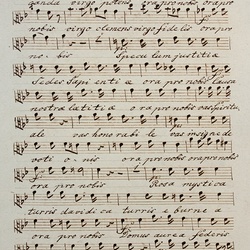 ganda virgo potens ora pro nobis ora pro
nobis virgo clemens virgo fidelis ora pro
no - bis Specu lum justitia
Sedes Sapi enti a ora pro nobis Causa
nostra latiti a o ra pro nobis vas spiritu
ale vas honorabi le vas insigne de
voti o - nis ora pro nobis ora pro nobis
ora pro nobis Rosa mystica
turris davidi ca turris e burne a
ora pro nobis Domus aurea federis